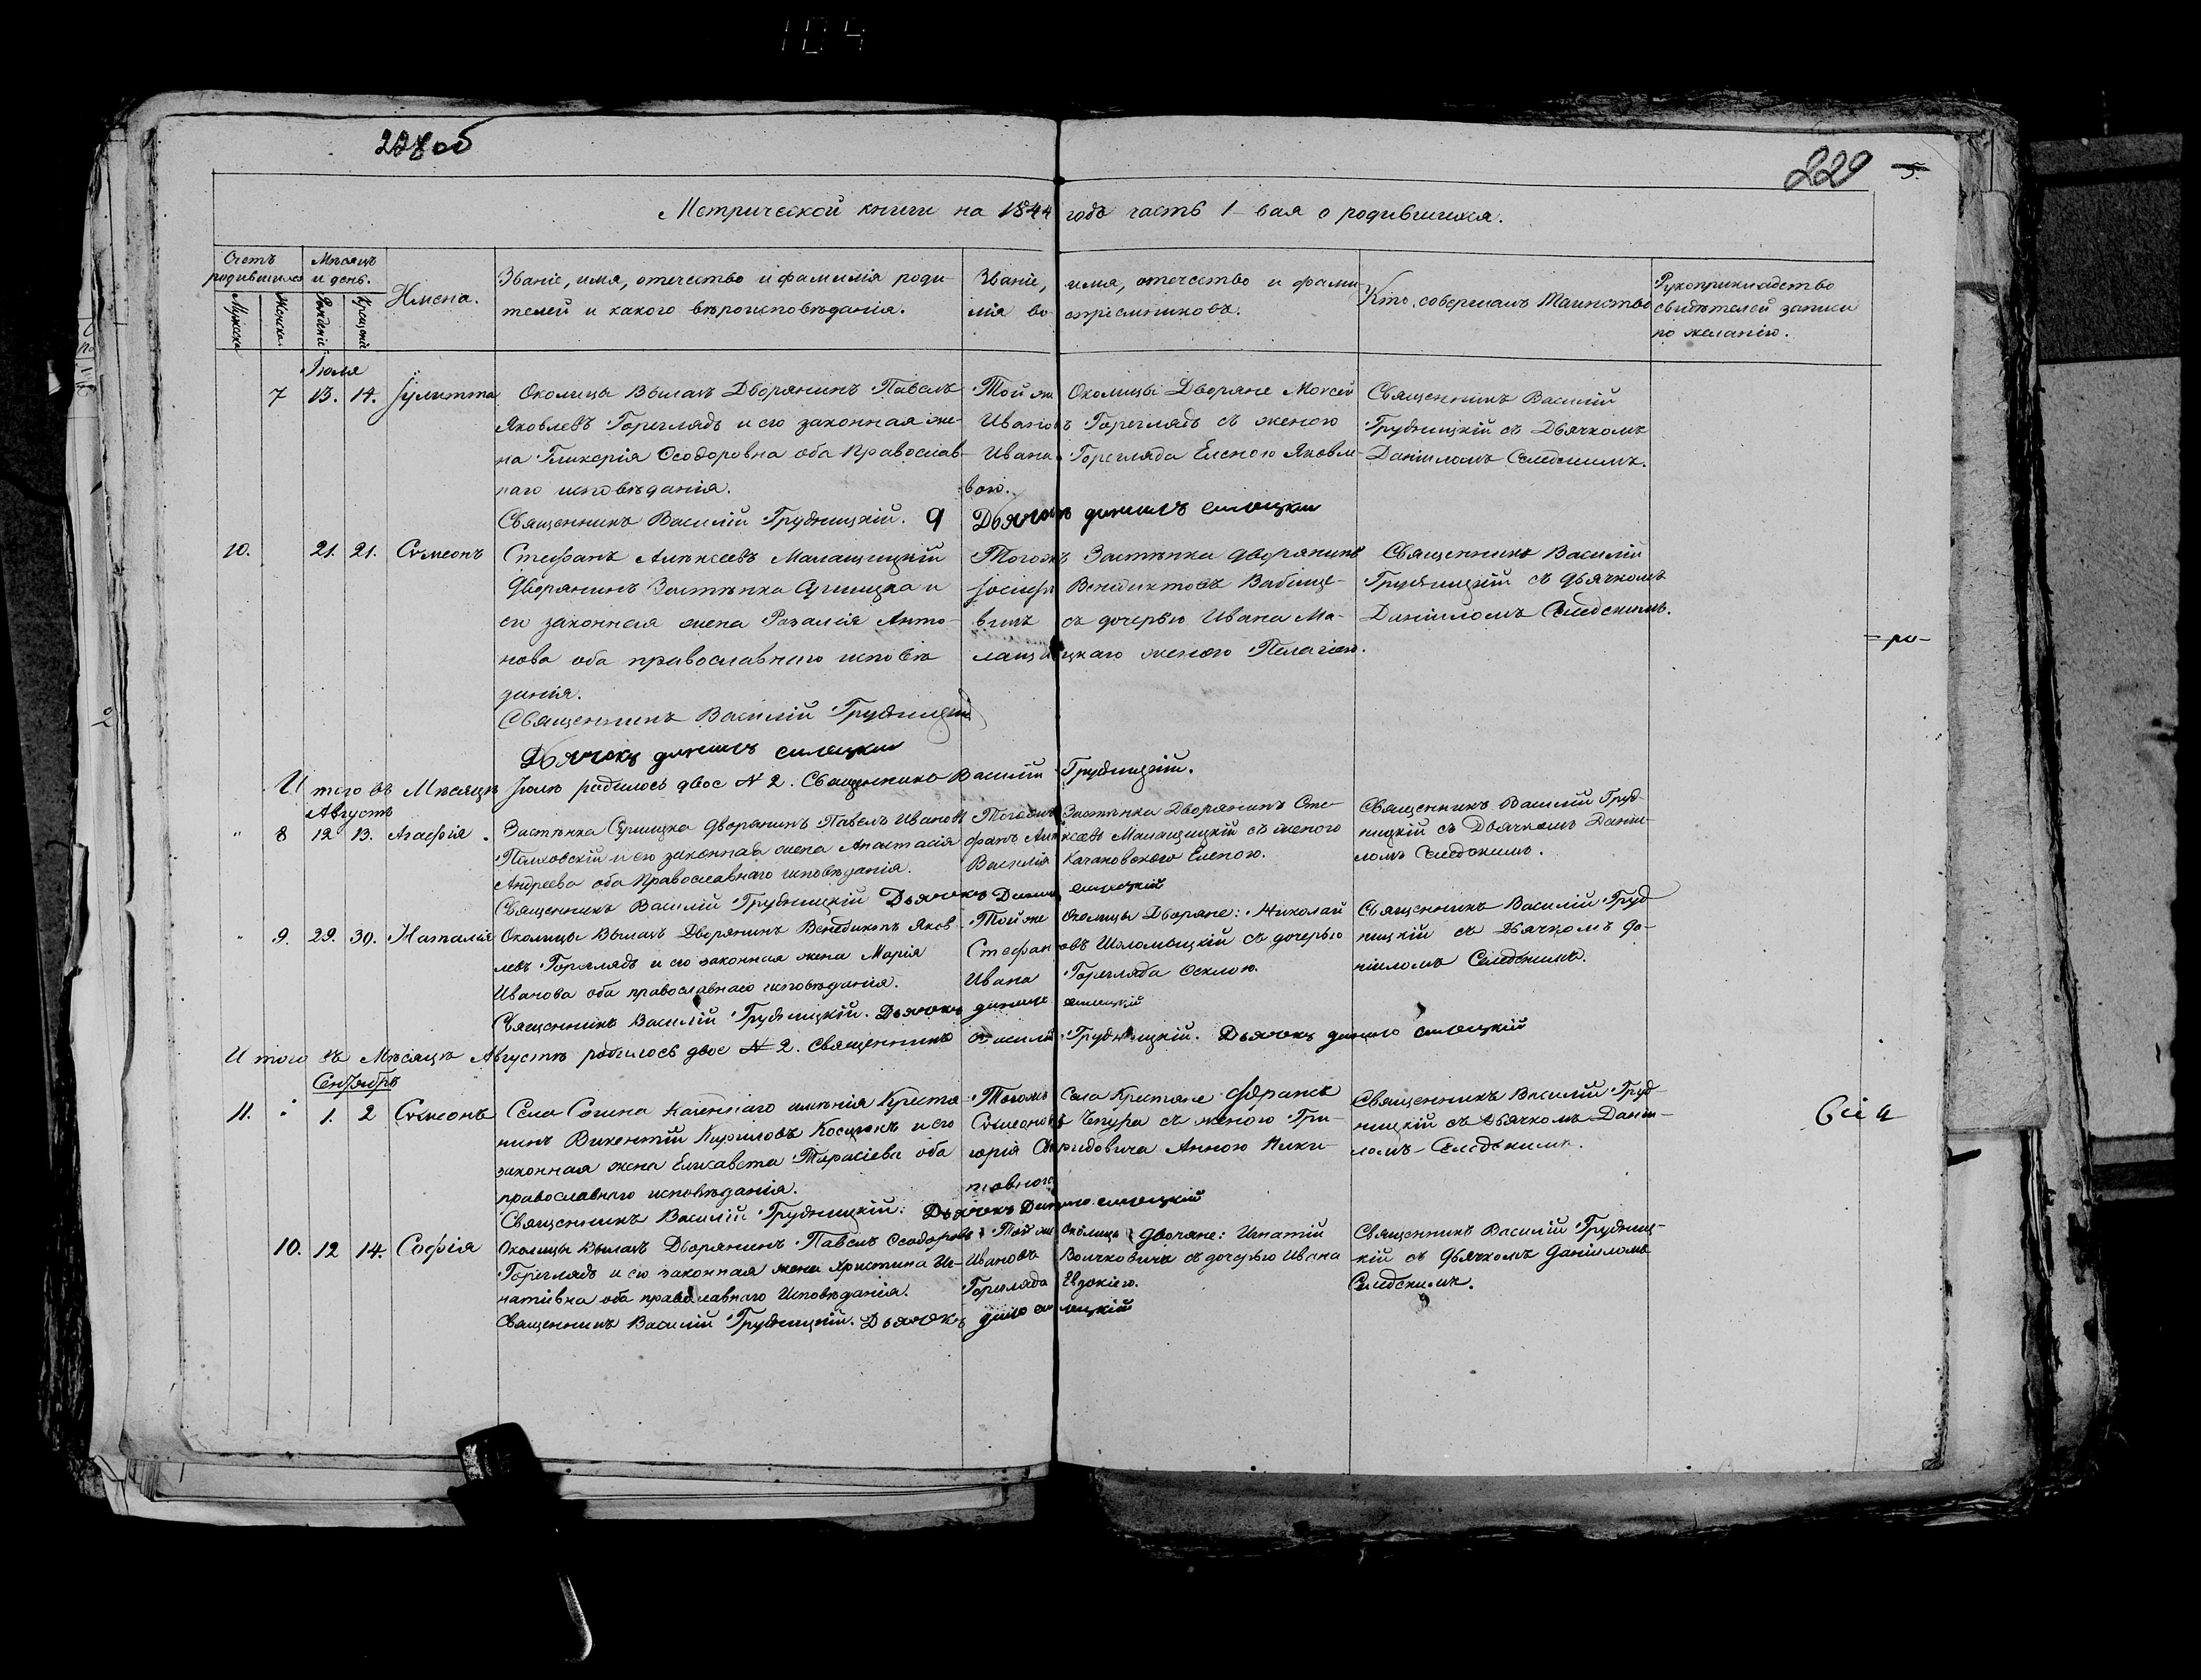 104
228 об
229 5.
Метрической книги на 1844 годъ часть 1-вая о родившихся.
Счетъ родившихся
Мѣсяцъ и день.
Мужска
Женска
Рожденіе
Крещеніе
Имена.
Званіе, имя, отечество и фамилія роди-
телей и какого вѣроисповѣданія.
Званіе, имя, отечество и фами
лія воспріемниковъ.
Кто совершалъ таинство
Рукоприкладство
свидѣтелей записи
по желанію.
Іюля
7 13. 14. Іулитта
Околицы Вылазъ Дворянинъ Павелъ
Яковлевъ Гореглядъ и его законная же-
на Гликерія Ѳеодоровна оба Православ-
наго исповѣданія.
Священникъ Василій Грудницкій.
Той же Околицы Дворяне Моисей
Ивановъ Гореглядъ съ женою
Ивана Горегляда Еленою Яковле-
вою.
Дьячокъ
Священникъ Василій
Грудницкій съ Дьячкомъ
Даніиломъ
10. 21. 21. Сѵмеонъ
Стефанъ Алексѣевъ Малащицкій
Дворянинъ Застѣнка и
его законная жена Розалія Анто-
нова оба православнаго исповѣ
данія.
Священникъ Василій Грудницкій
Дьячокъ
Тогожъ Застѣнка дворянинъ
Іосифъ Венедиктовъ Бабище-
вичъ съ дочерью Ивана Ма-
лащицкаго женою Пелагіею.
Священникъ Василій
Грудницкій съ дьячкомъ
Даніиломъ
-ро-
Итого въ Мѣсяцѣ Іюлѣ родилось двое № 2. Священникъ Василій Грудницкій.
Августъ
" 8 12 13. Агафія.
Застѣнка дворянинъ Павелъ Ивановъ
и его законная жена Анастасія
Андреева оба Православнаго исповѣданія.
Священникъ Василій Грудницкій Дьячокъ
Тогожъ Застѣнка Дворянинъ Сте-
фанъ Алексѣевъ Малащицкій съ женою
Василія Качановскаго Еленою.
Священникъ Василій Груд-
ницкій съ Дьячкомъ Даніи-
ломъ
" 9. 29. 30. Наталія
Околицы Вылазъ Дворянинъ Венедиктъ Яков-
левъ Гореглядъ и его законная жена Марія
Иванова оба православнаго исповѣданія.
Священникъ Василій Грудницкій. Дьячокъ
Той же околицы Дворяне: Николай
Стефановъ Шоломицкій съ дочерью
Ивана Горегляда
Священникъ Василій Груд
ницкій съ Дьячкомъ Да-
ніиломъ
Итого въ Мѣсяцѣ Августѣ родилось двое № 2. Священникъ Василій Грудницкій. Дьячокъ
Сентябрь
11. 1. 2 Сѵмеонъ
Села Сошна казеннаго имѣнія Крестья-
нинъ Викентій Кириловъ и его
законная жена Елисавета Тарасіева оба
православнаго исповѣданія.
Священникъ Василій Грудницкій: Дьячокъ
Тогожъ Села Крестьяне Францъ
Сѵмеоновъ Чепура съ женою Гри-
горія Свиридовича Анною Ники-
товною
Священникъ Василій Груд-
ницкій съ Дьячкомъ Даніи-
ломъ
10. 12 14. Софія
Околицы Вылазъ Дворянинъ Павелъ Ѳеодоровъ
Гореглядъ и его законная жена Христина Иг-
натіевна оба православнаго Исповѣданія.
Священникъ Василій Грудницкій. Дьячокъ
Той же Околицы Дворяне: Игнатій
Ивановъ съ дочерью Ивана
Горегляда Евдокіею.
Священникъ Василій Грудниц-
кій съ дьячкомъ Даніиломъ